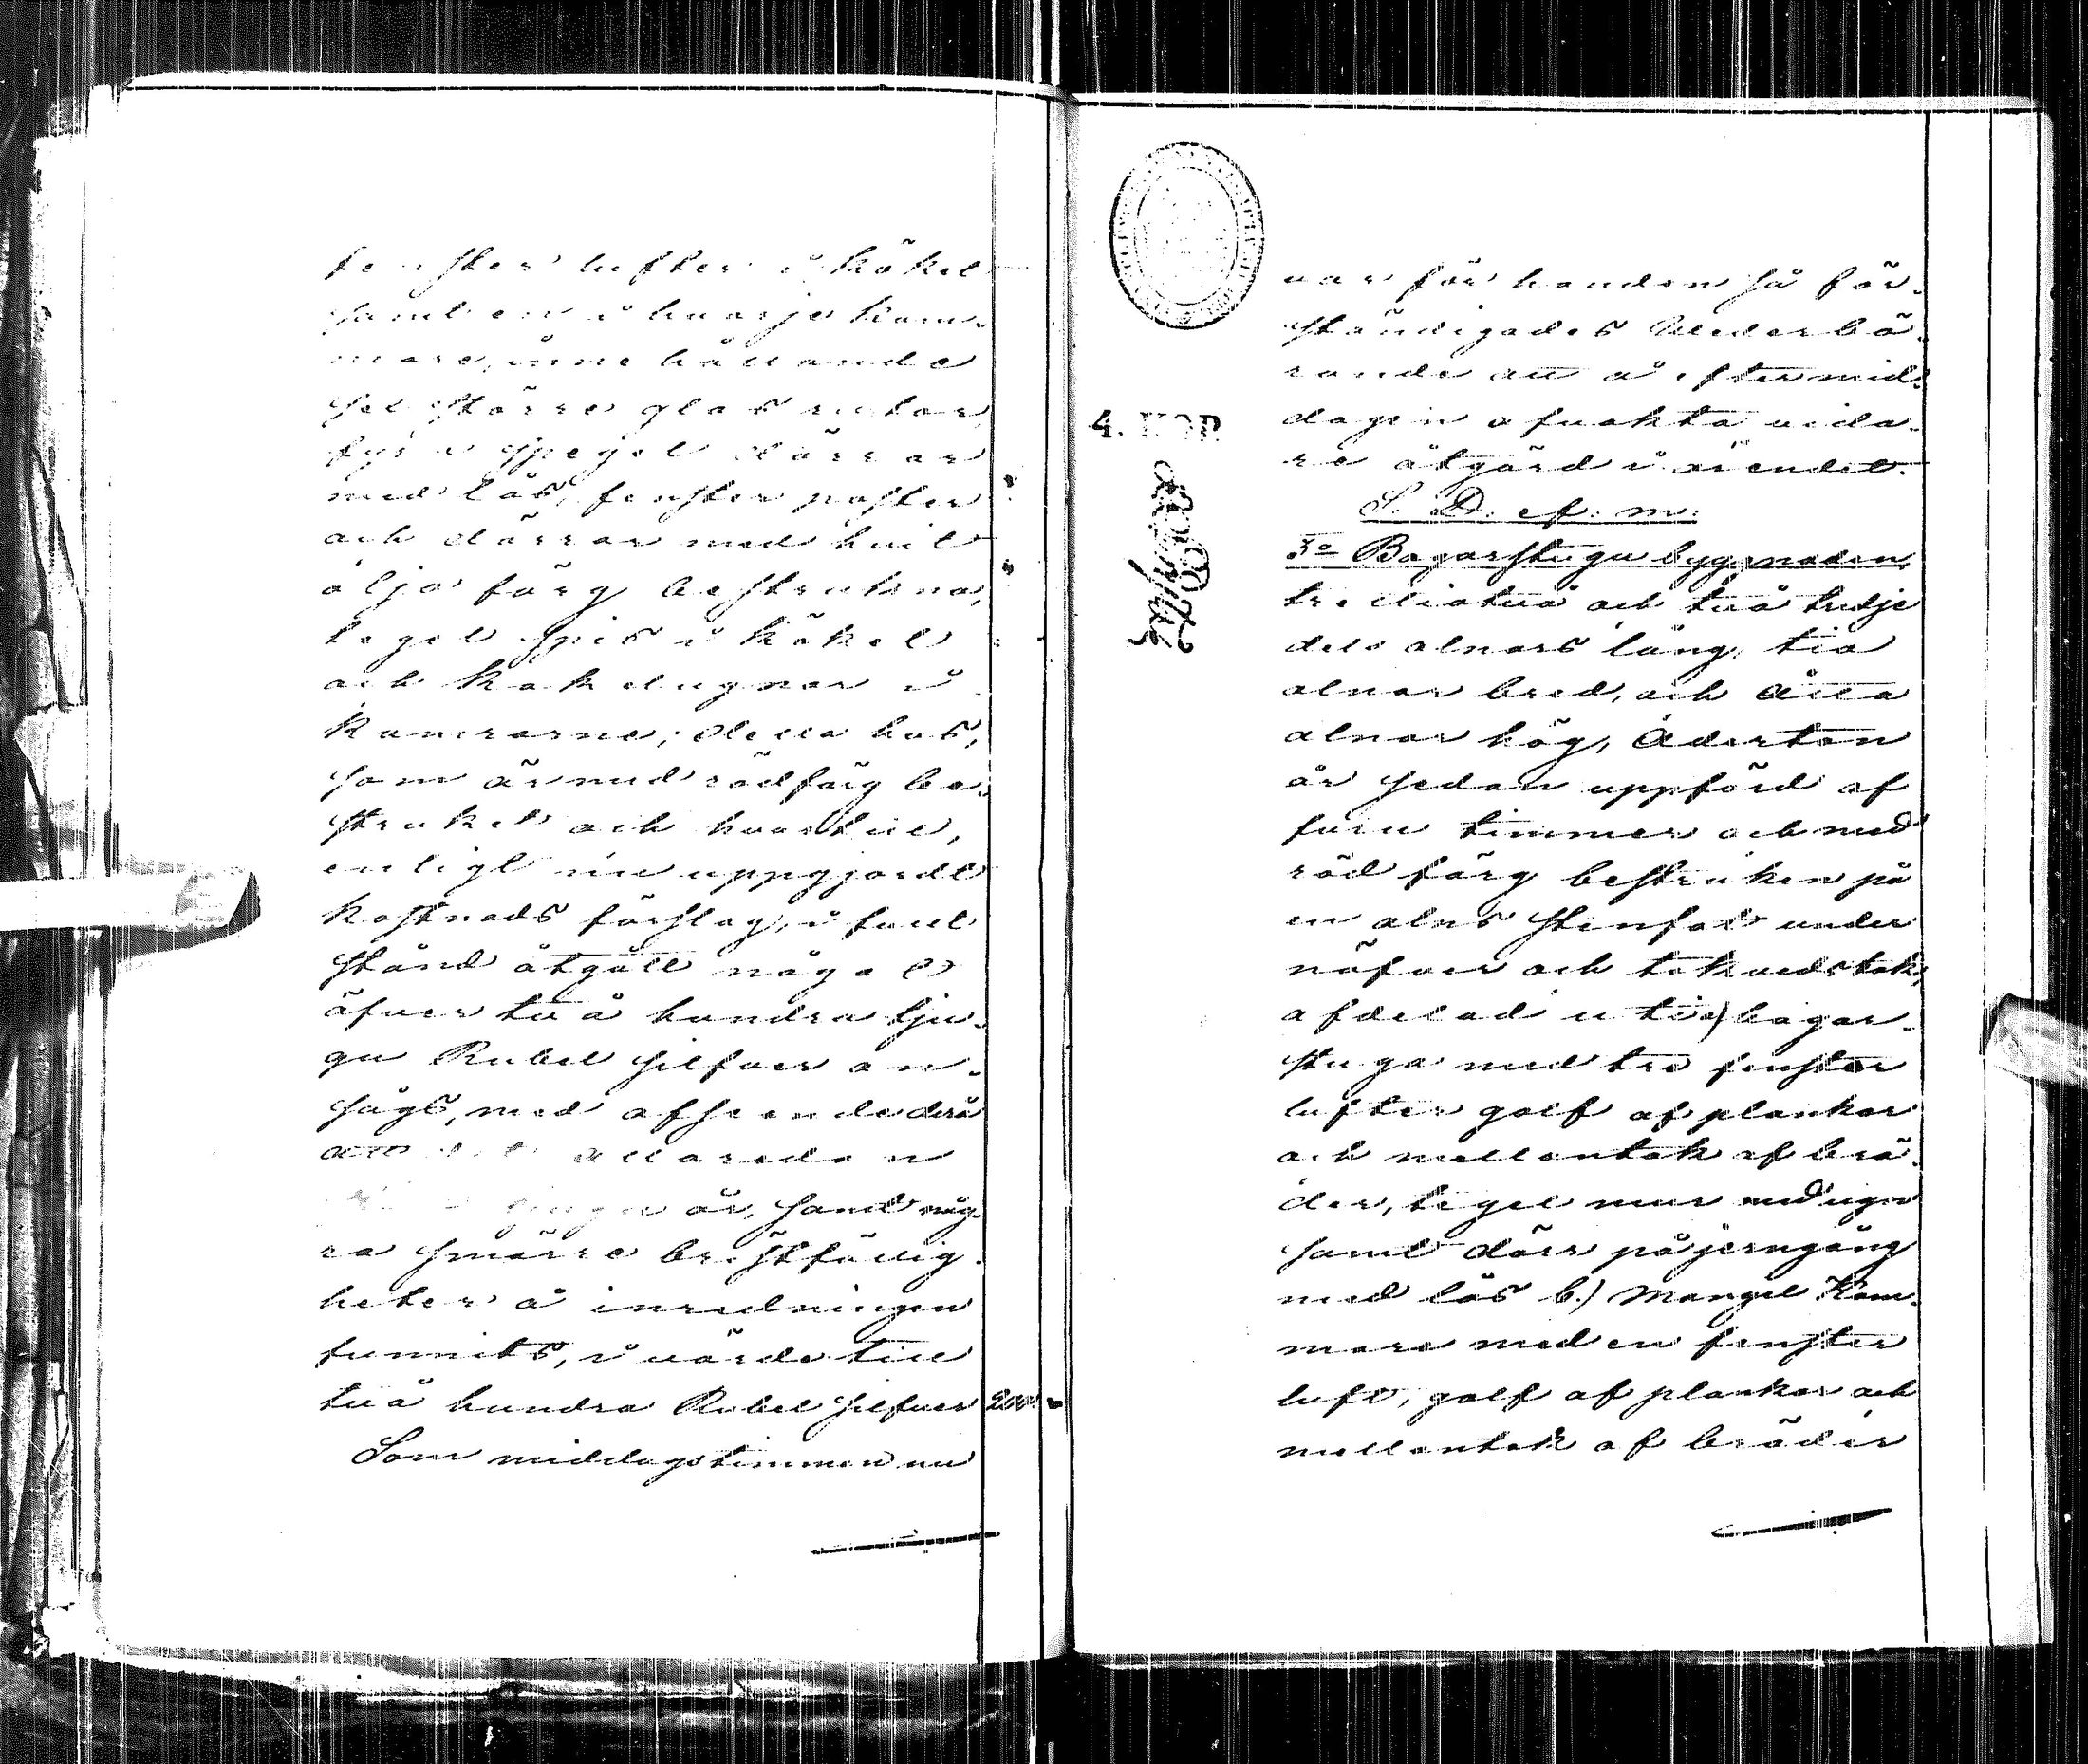 fenster lufter i köket
samt en i hvarje kam-
mare, inne hållande
sex större glas rutor,
fyra spegel dörrar
med lås, fenster poster
och dörrar med hvit
olje färg bestrukna,
tegel spis i köket
och kakelugnar i
kamrarne; detta hus,
som är med rödfärg be-
struket och hvartill,
enligt nu uppgjordt
kostnads förslag, i fullt
stånd åtgått något
öfver två hundra tju-
gu Rubel silfver an-
sågs, med afseende derå
att allaredan
år, samt någ-
ra smärre bristfällig-
heter å inredningen
funnits, i värde till
två hundra Rubel silfver 200 -
Som middagstimmen nu
var för handen så för-
ständigades Vederbö-
rande att å eftermid-
dagen afvakta vida-
re åtgärd i ärendet.
S. D. ef. m.
3o Bagarstugu byggnaden,
trettiotvå och två tredje
dels alnars lång, tio
alnar bred, och åtta
alnar hög, Aderton
år sedan uppförd af
furu timmer och med
röd färg bestruken på
en alns stenfot under
näfver och takvedstak,
afdelad uti a) bagar-
stuga med tre fenster
lufter golf af plankor
och mellantak af brä-
der, tegel mur med ugn
samt dörr på jerngång
med lås b.) Mangel Kam-
mare med en fenster
luft, golf af plankor och
mellantak af bräder
4. KOP.